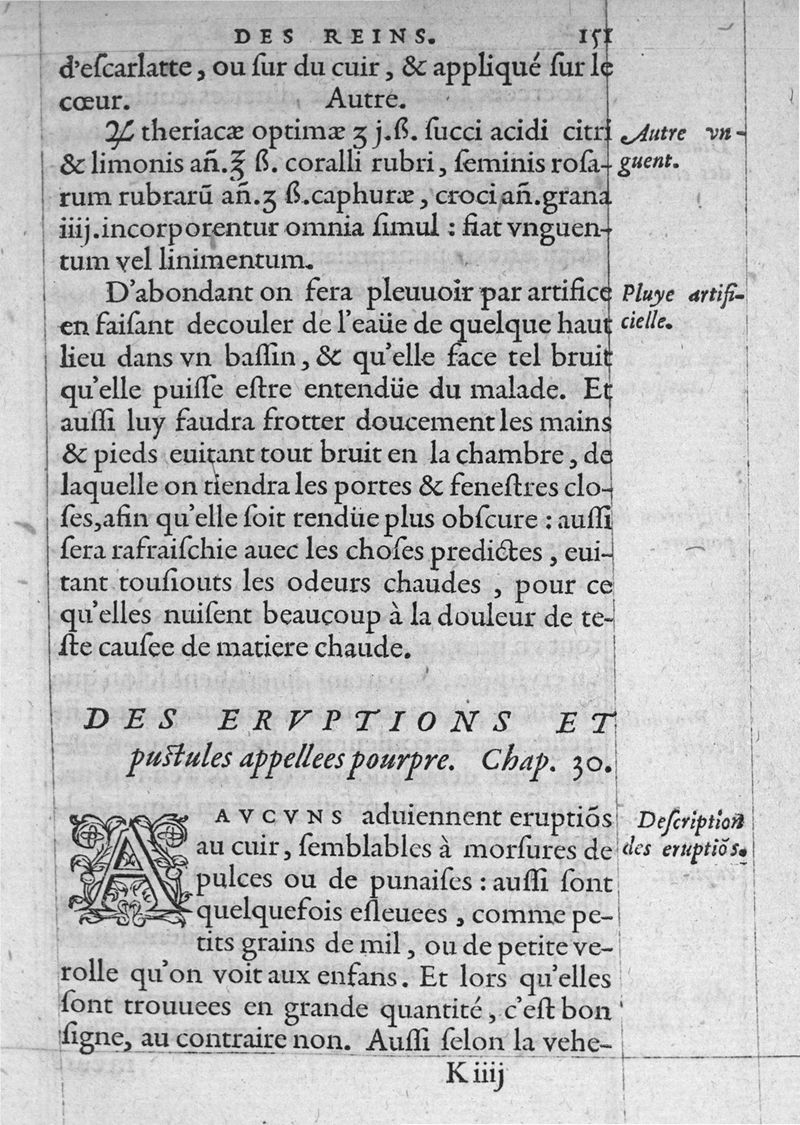 DES REINS. 151
d'eſcarlatte, ou ſur du cuir, & appliqué ſur le
cœur. Autre.
℞ theriacæ optimæ ʒ j.ß. ſucci acidi citri
& limonis añ.℥ ß. coralli rubri, ſeminis roſa-
rum rubrarũ añ.ʒ ß.caphuræ, croci añ.grana
iiij.incorporentur omnia ſimul : fiat vnguen-
tum vel linimentum.
Autre vn-
guent.
D'abondant on fera pleuuoir par artifice
en faiſant decouler de l'eaüe de quelque haut
lieu dans vn baſſin, & qu'elle face tel bruit
qu'elle puiſſe eſtre entendüe du malade. Et
auſſi luy faudra frotter doucement les mains
& pieds euitant tout bruit en la chambre, de
laquelle on tiendra les portes & feneſtres clo-
ſes,afin qu'elle ſoit rendüe plus obſcure : auſſi
ſera rafraiſchie auec les choſes predictes, eui-
tant touſiouts les odeurs chaudes, pour ce
qu'elles nuiſent beaucoup à la douleur de te-
ſte cauſee de matiere chaude.
Pluye artifi-
cielle.
DES ERVPTIONS ET
puſtules appellees pourpre. Chap. 30.
AVCVNS aduiennent eruptiõs
au cuir, ſemblables à morſures de
pulces ou de punaiſes : auſſi ſont
quelquefois eſleuees, comme pe-
tits grains de mil, ou de petite ve-
rolle qu'on voit aux enfans. Et lors qu'elles
ſont trouuees en grande quantité, c'eſt bon
ſigne, au contraire non. Auſſi ſelon la vehe-
Deſcription
des eruptiõs.
K iiij